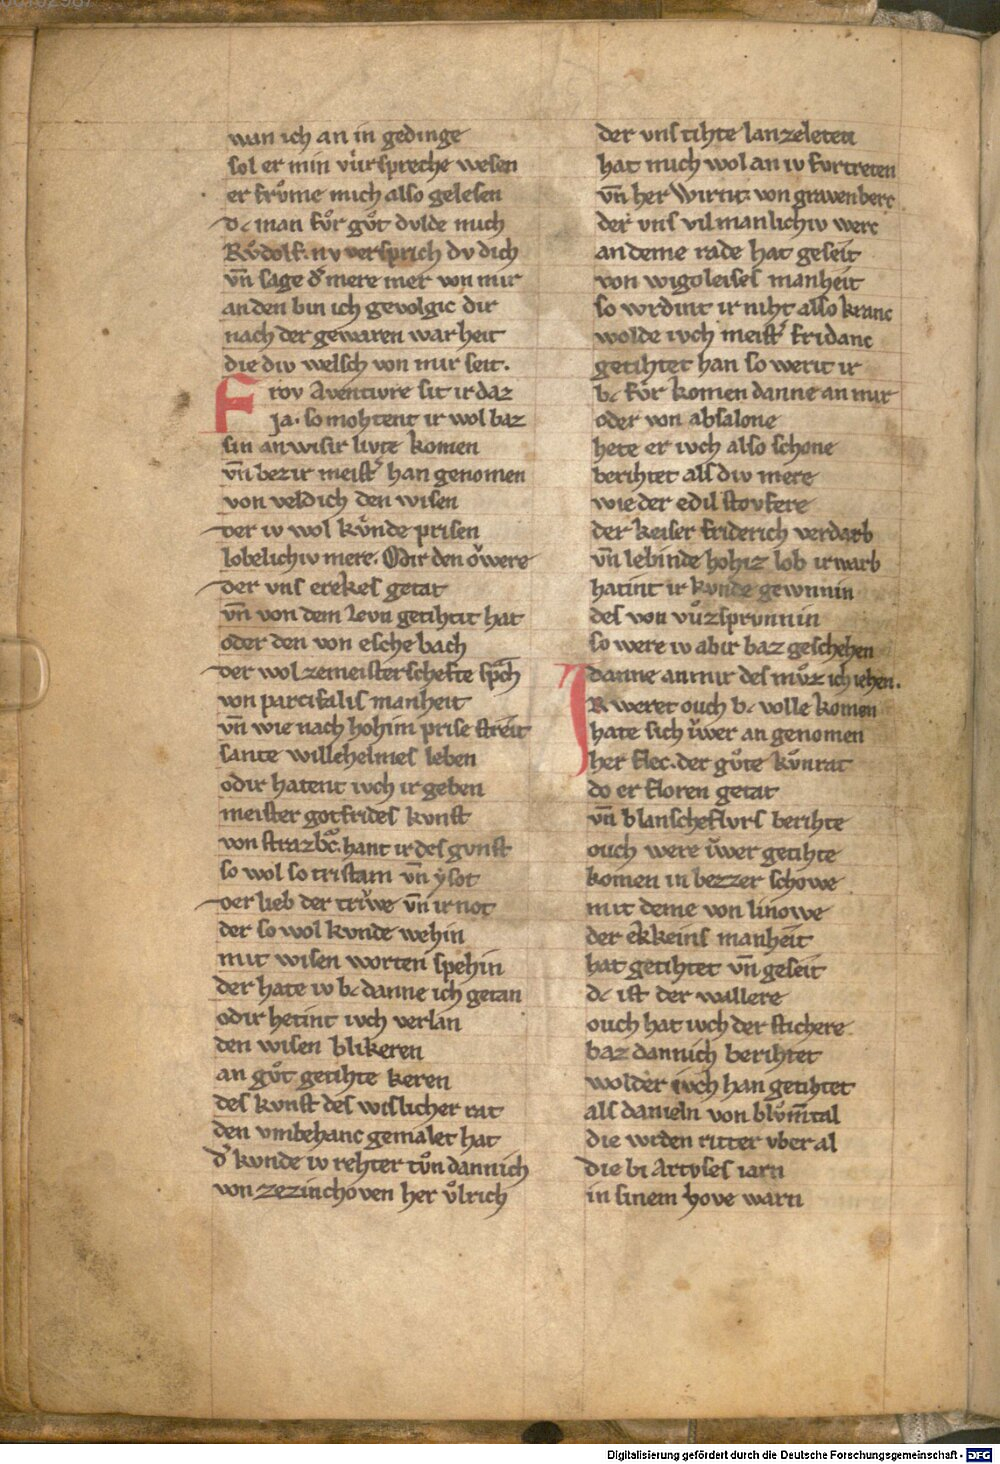 wan ich an in gedinge
sol er min vürspreche wesen
er frůme mich also gelesen
dc man fůr gůt dvlde mich
Růdolf. nv versprich dv dich
vn̄ sage d͛ mere mer von mir
an den bin ich gevolgic dir
nach der gewaren warheit
die div welsch von mir seit.
Frov Aventivre sit ir daz
Ja. so mohtent ir wol baz
sin an wisir livte komen
vn̄ bezir meist͛ han genomen
von veldich den wisen
der iv wol kvnde prisen
lobelichiv mere. Odir den owere
der vns erekes getat
vn̄ von dem Levn getihtit hat
oder den von eschebach
der wol ze meisterschefte sp̄ch
von parcifalis manheit
vn̄ wie nach hohim prise streit
sante willehelmes leben
odir hatent ivch irgeben
meister gotfrides kvnst
von strazbc. hant ir des gvnst
so wol so tristam vn̄ ysot
der lieb der trvwe vn̄ ir not
der so wol kvnde wehin
mit wisen worten spehin
der hate iv bc danne ich getan
odir hetint ivch verlan
den wisen blikeren
an gůt getihte keren
des kvnst des wislicher rat
den vmbehanc gemalet hat
d͛ kvnde iv rehter tůn dannich
von zezinchoven her vͦlrich
der vns tihte lanzeleten
hat mich wol an iv fvrtreten
vn̄ her Wirtic von gravenberc
der vns vil manlichiv werc
an deme rade hat geseit
von wigoleises manheit
so wrdint ir niht also kranc
wolde ivch meist͛ fridanc
getihtet han so werit ir
bc fvr komen danne an mir
oder von absalone
hete er ivch also schone
berihtet als div mere
wie der edil stovfere
der keiser friderich verdarb
vn̄ lebinde hohiz lob irwarb
hatint ir kvnde gewnnin
des von vůzsprvnnin
so were iv abir baz geschehen
danne an mir des můz ich iehen.
IR weret ouch bc volle komen
hate sich vwer an genomen
her flec. der gůte kůnrat
do er floren getat
vn̄ blanscheflvrs berihte
ouch were vwer getihte
komen in bezzer schowe
mit deme von linowe
der ekkeins manheit
hat getihtet vn̄ geseit
dc ist der wallere
ouch hat ivch der strickere
baz dannich berihtet
wolder ivch han getihtet
als danieln von blům̄tal
die wrden ritter vber al
die bi Artvses iarn
in sinem hove warn
Digitalisierung gefördert durch die Deutsche Forschungsgemeinschaft - DFG